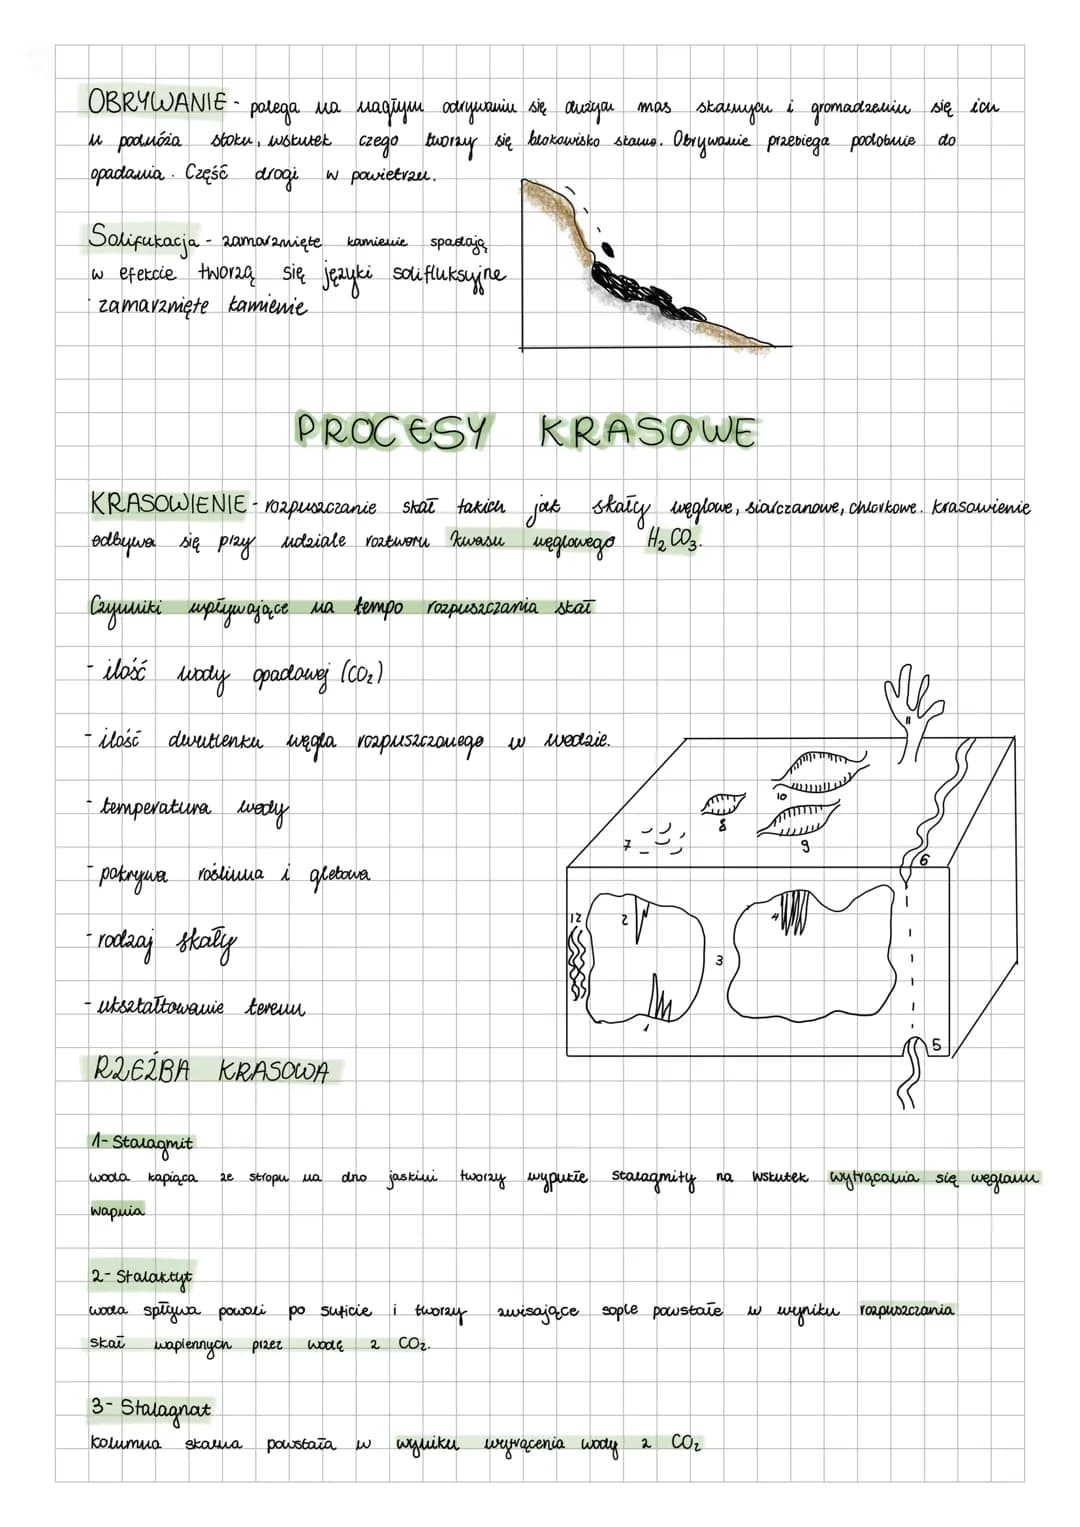 OBRYWANIE - polega na nagłym odrywaniu się dużych mas skalnych i gromadzeniu się ich
u podnóża stoku, wskutek czego tworzy się blokowisko skalne. Obrywanie przebiega podobnie do
opadania. Część drogi w powietrzu.
Solifukacja - zamarznięte kamienie spadają
w efekcie tworzą się języki solifluksyjne
zamarznięte kamienie
PROCESY KRASOWE
KRASOWIENIE - rozpuszczanie skał takich jak skały węglowe, siarczanowe, chlorkowe. Krasowienie
odbywa się przy udziale roztworu kwasu węglowego H₂CO₃.
Czynniki wpływające na tempo rozpuszczania skał
- ilość wody opadowej (CO₂)
- ilość dwutlenku węgla rozpuszczonego w wodzie.
- temperatura wody
- pokrywa roślinna i glebowa
- rodzaj skały
- ukształtowanie terenu
11
10
8
7
9
6
12
2
4
3
1
5
RZEŹBA KRASOWA
1- Stalagmit
woda kapiąca ze stropu na dno jaskini tworzy wypukłe stalagmity na wskutek wytrącania się węglanu
wapnia
2- Stalaktyt
woda spływa powoli po suficie i tworzy zwisające sople powstałe w wyniku rozpuszczania
skał wapiennych przez wodę z CO₂.
3- Stalagnat
kolumna skalna powstała w wyniku wytrącenia wody z CO₂